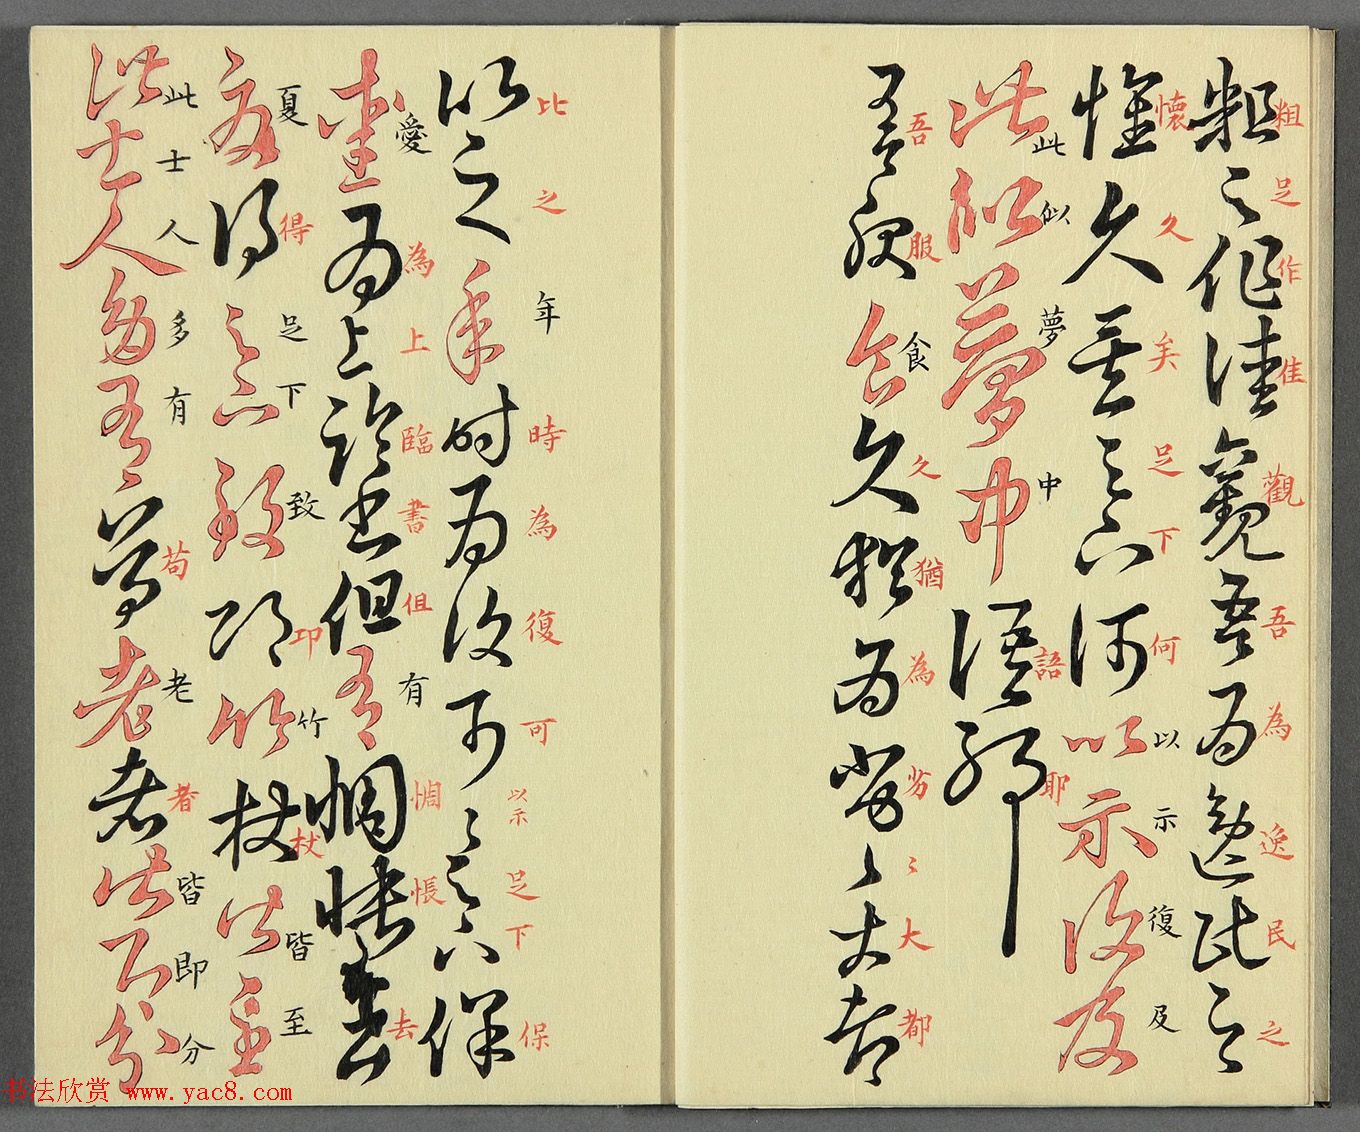 粗足作佳觀吾為逸民之
懷久矣足下何以示復及
此似夢中語耶
吾服食久猶為劣〻大都
比之年時為復可〻足下保
愛為上臨書但有惆悵去
夏得足下致邛竹杖皆至
此士人多有尊老者皆即分
书法欣赏 www.yac8.com